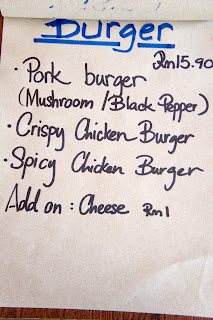 Burger
Rm15.90
• Pork burger
(Mushroom / Black Pepper)
• Crispy Chicken Burger
• Spicy Chicken Burger
Add on : Cheese Rm1